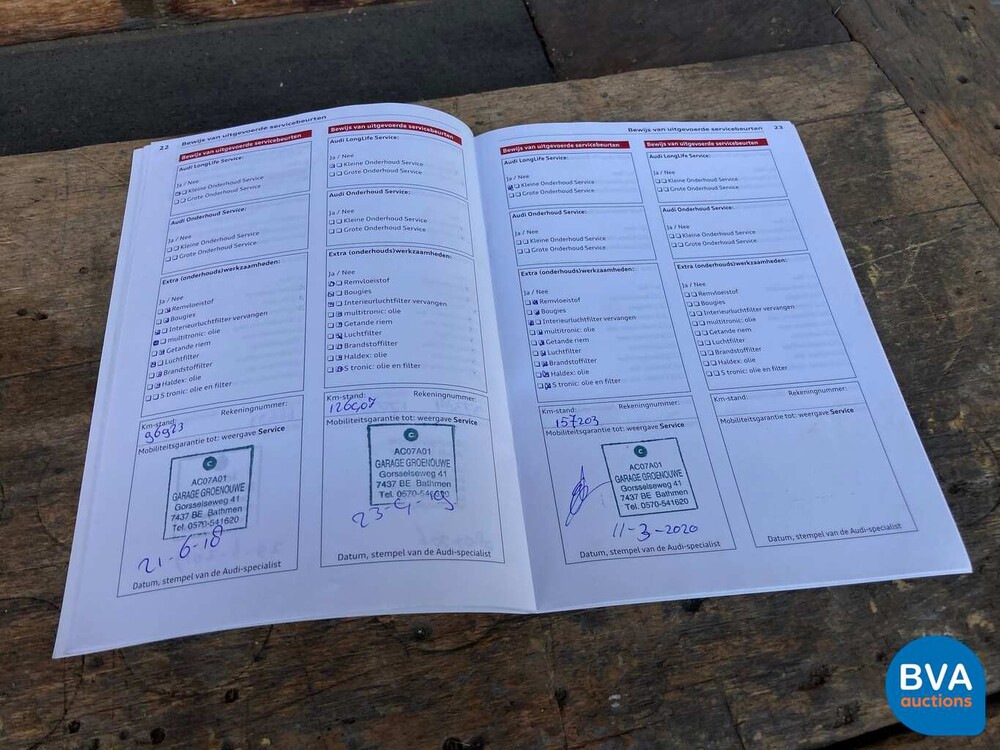 22 Bewijs van uitgevoerde servicebeurten
Bewijs van uitgevoerde servicebeurten
Audi LongLife Service:
Ja / Nee
Kleine Onderhoud Service
Grote Onderhoud Service
Audi Onderhoud Service:
Ja / Nee
Kleine Onderhoud Service
Grote Onderhoud Service
Extra (onderhouds)werkzaamheden:
Ja / Nee
Remvloeistof
Bougies
Interieurluchtfilter vervangen
multitronic: olie
Getande riem
Luchtfilter
Brandstoffilter
Haldex: olie
S tronic: olie en filter
Km-stand: Rekeningnummer:
96923
Mobiliteitsgarantie tot: weergave Service
C
AC07A01
GARAGE GROENOUWE
Gorsselseweg 41
7437 BE Bathmen
Tel. 0570-541620
21-6-18
Datum, stempel van de Audi-specialist
Bewijs van uitgevoerde servicebeurten
Audi LongLife Service:
Ja / Nee
Kleine Onderhoud Service
Grote Onderhoud Service
Audi Onderhoud Service:
Ja / Nee
Kleine Onderhoud Service
Grote Onderhoud Service
Extra (onderhouds)werkzaamheden:
Ja / Nee
Remvloeistof
Bougies
Interieurluchtfilter vervangen
multitronic: olie
Getande riem
Luchtfilter
Brandstoffilter
Haldex: olie
S tronic: olie en filter
Km-stand: Rekeningnummer:
Mobiliteitsgarantie tot: weergave Service
C
AC07A01
GARAGE GROENOUWE
Gorsselseweg 41
7437 BE Bathmen
Tel. 0570-541620
Datum, stempel van de Audi-specialist
Bewijs van uitgevoerde servicebeurten 23
Bewijs van uitgevoerde servicebeurten
Audi LongLife Service:
Ja / Nee
Kleine Onderhoud Service
Grote Onderhoud Service
Audi Onderhoud Service:
Ja / Nee
Kleine Onderhoud Service
Grote Onderhoud Service
Extra (onderhouds)werkzaamheden:
Ja / Nee
Remvloeistof
Bougies
Interieurluchtfilter vervangen
multitronic: olie
Getande riem
Luchtfilter
Brandstoffilter
Haldex: olie
S tronic: olie en filter
Km-stand: Rekeningnummer:
157203
Mobiliteitsgarantie tot: weergave Service
C
AC07A01
GARAGE GROENOUWE
Gorsselseweg 41
7437 BE Bathmen
Tel. 0570-541620
11-3-2020
Datum, stempel van de Audi-specialist
Bewijs van uitgevoerde servicebeurten
Audi LongLife Service:
Ja / Nee
Kleine Onderhoud Service
Grote Onderhoud Service
Audi Onderhoud Service:
Ja / Nee
Kleine Onderhoud Service
Grote Onderhoud Service
Extra (onderhouds)werkzaamheden:
Ja / Nee
Remvloeistof
Bougies
Interieurluchtfilter vervangen
multitronic: olie
Getande riem
Luchtfilter
Brandstoffilter
Haldex: olie
S tronic: olie en filter
Km-stand: Rekeningnummer:
Mobiliteitsgarantie tot: weergave Service
Datum, stempel van de Audi-specialist
BVA
auctions